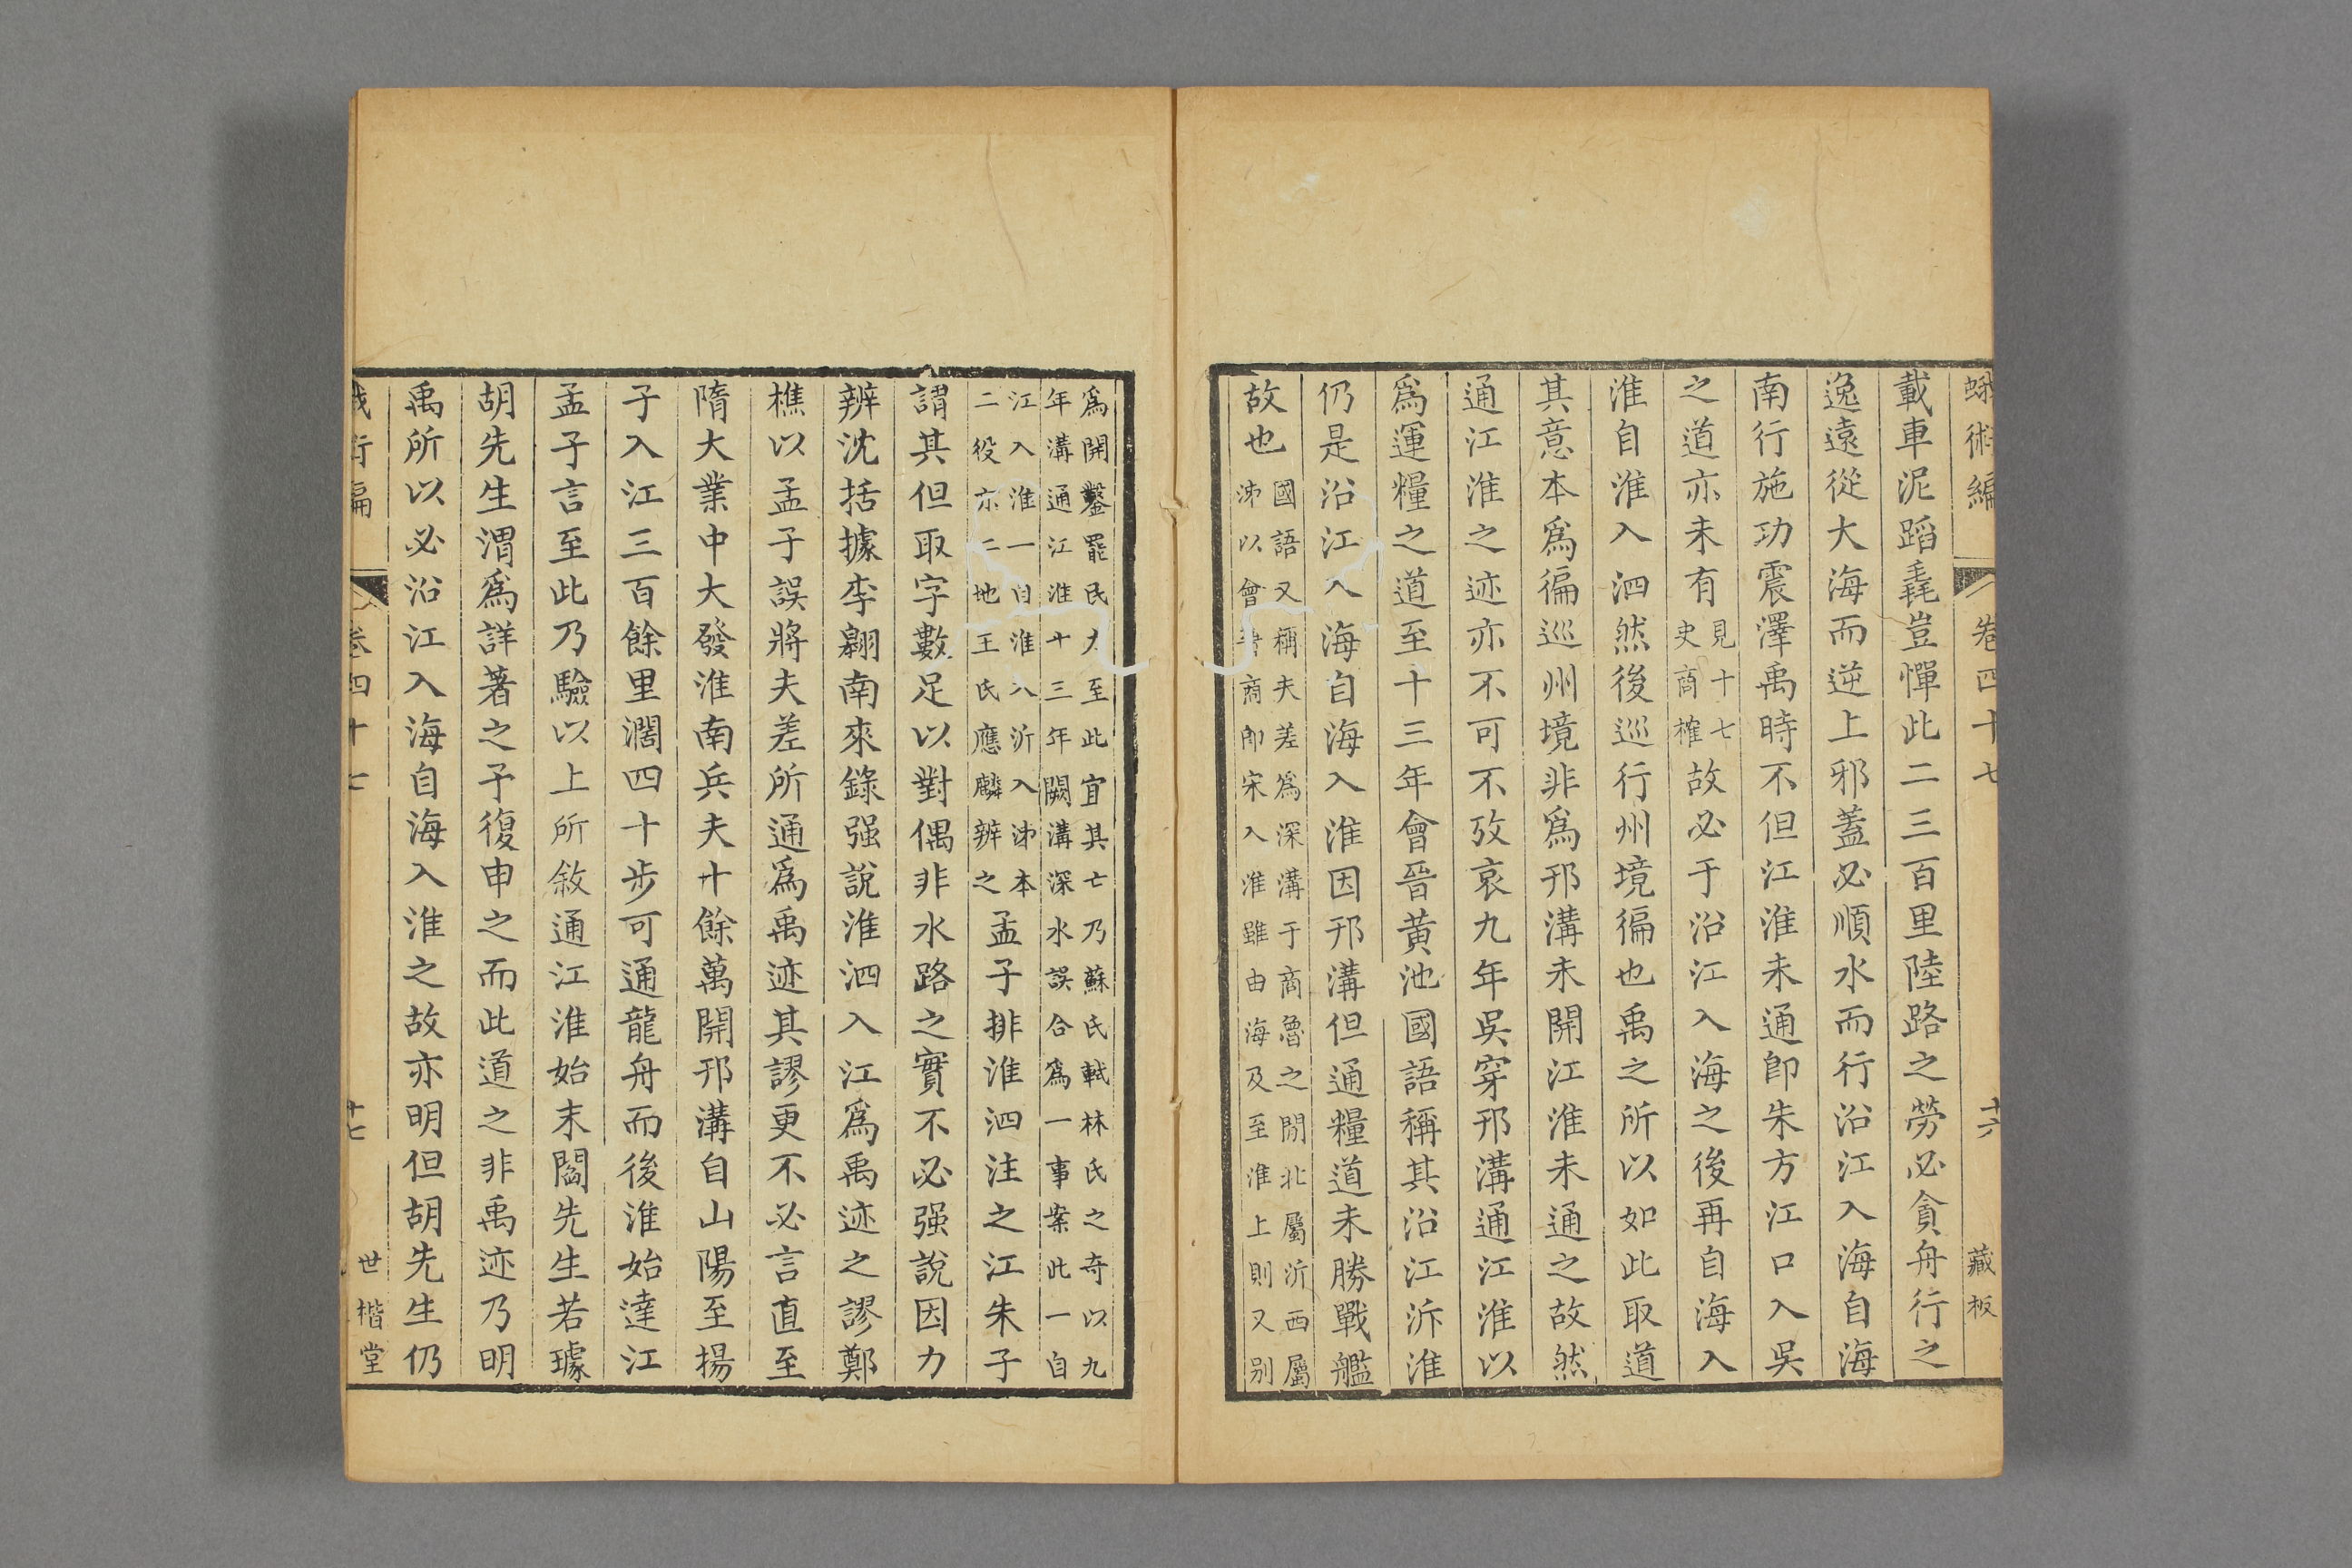 蛾術編 卷四十七 十六 藏板
載車泥蹈毳豈憚此二三百里陸路之勞必貪舟行之
逸遠從大海而逆上邪蓋必順水而行沿江入海自海
南行施功震澤禹時不但江淮未通卽朱方江口入吳
之道亦未有見十七史商榷故必于沿江入海之後再自海入
淮自淮入泗然後巡行州境徧也禹之所以如此取道
其意本爲徧巡州境非爲邗溝未開江淮未通之故然
通江淮之迹亦不可不攷哀九年吳穿邗溝通江淮以
爲運糧之道至十三年會晉黃池國語稱其沿江泝淮
仍是沿江入海自海入淮因邗溝但通糧道未勝戰艦
故也國語又稱夫差爲深溝于商魯之閒北屬沂西屬
沛以會晉商卽宋入淮雖由海及至淮上則又别
爲開鑿罷民力至此宜其亡乃蘇氏軾林氏之奇以九
年溝通江淮十三年闕溝深水誤合爲一事案此一自
江入淮一自淮入沂入沛本
二役亦二地王氏應麟辨之孟子排淮泗注之江朱子
謂其但取字數足以對偶非水路之實不必强說因力
辨沈括據李翺南來錄强說淮泗入江爲禹迹之謬鄭
樵以孟子誤將夫差所通爲禹迹其謬更不必言直至
隋大業中大發淮南兵夫十餘萬開邗溝自山陽至揚
子入江三百餘里濶四十步可通龍舟而後淮始達江
孟子言至此乃驗以上所敘通江淮始末閻先生若璩
胡先生渭爲詳著之予復申之而此道之非禹迹乃明
禹所以必沿江入海自海入淮之故亦明但胡先生仍
蛾術編 卷四十七 十七 世楷堂